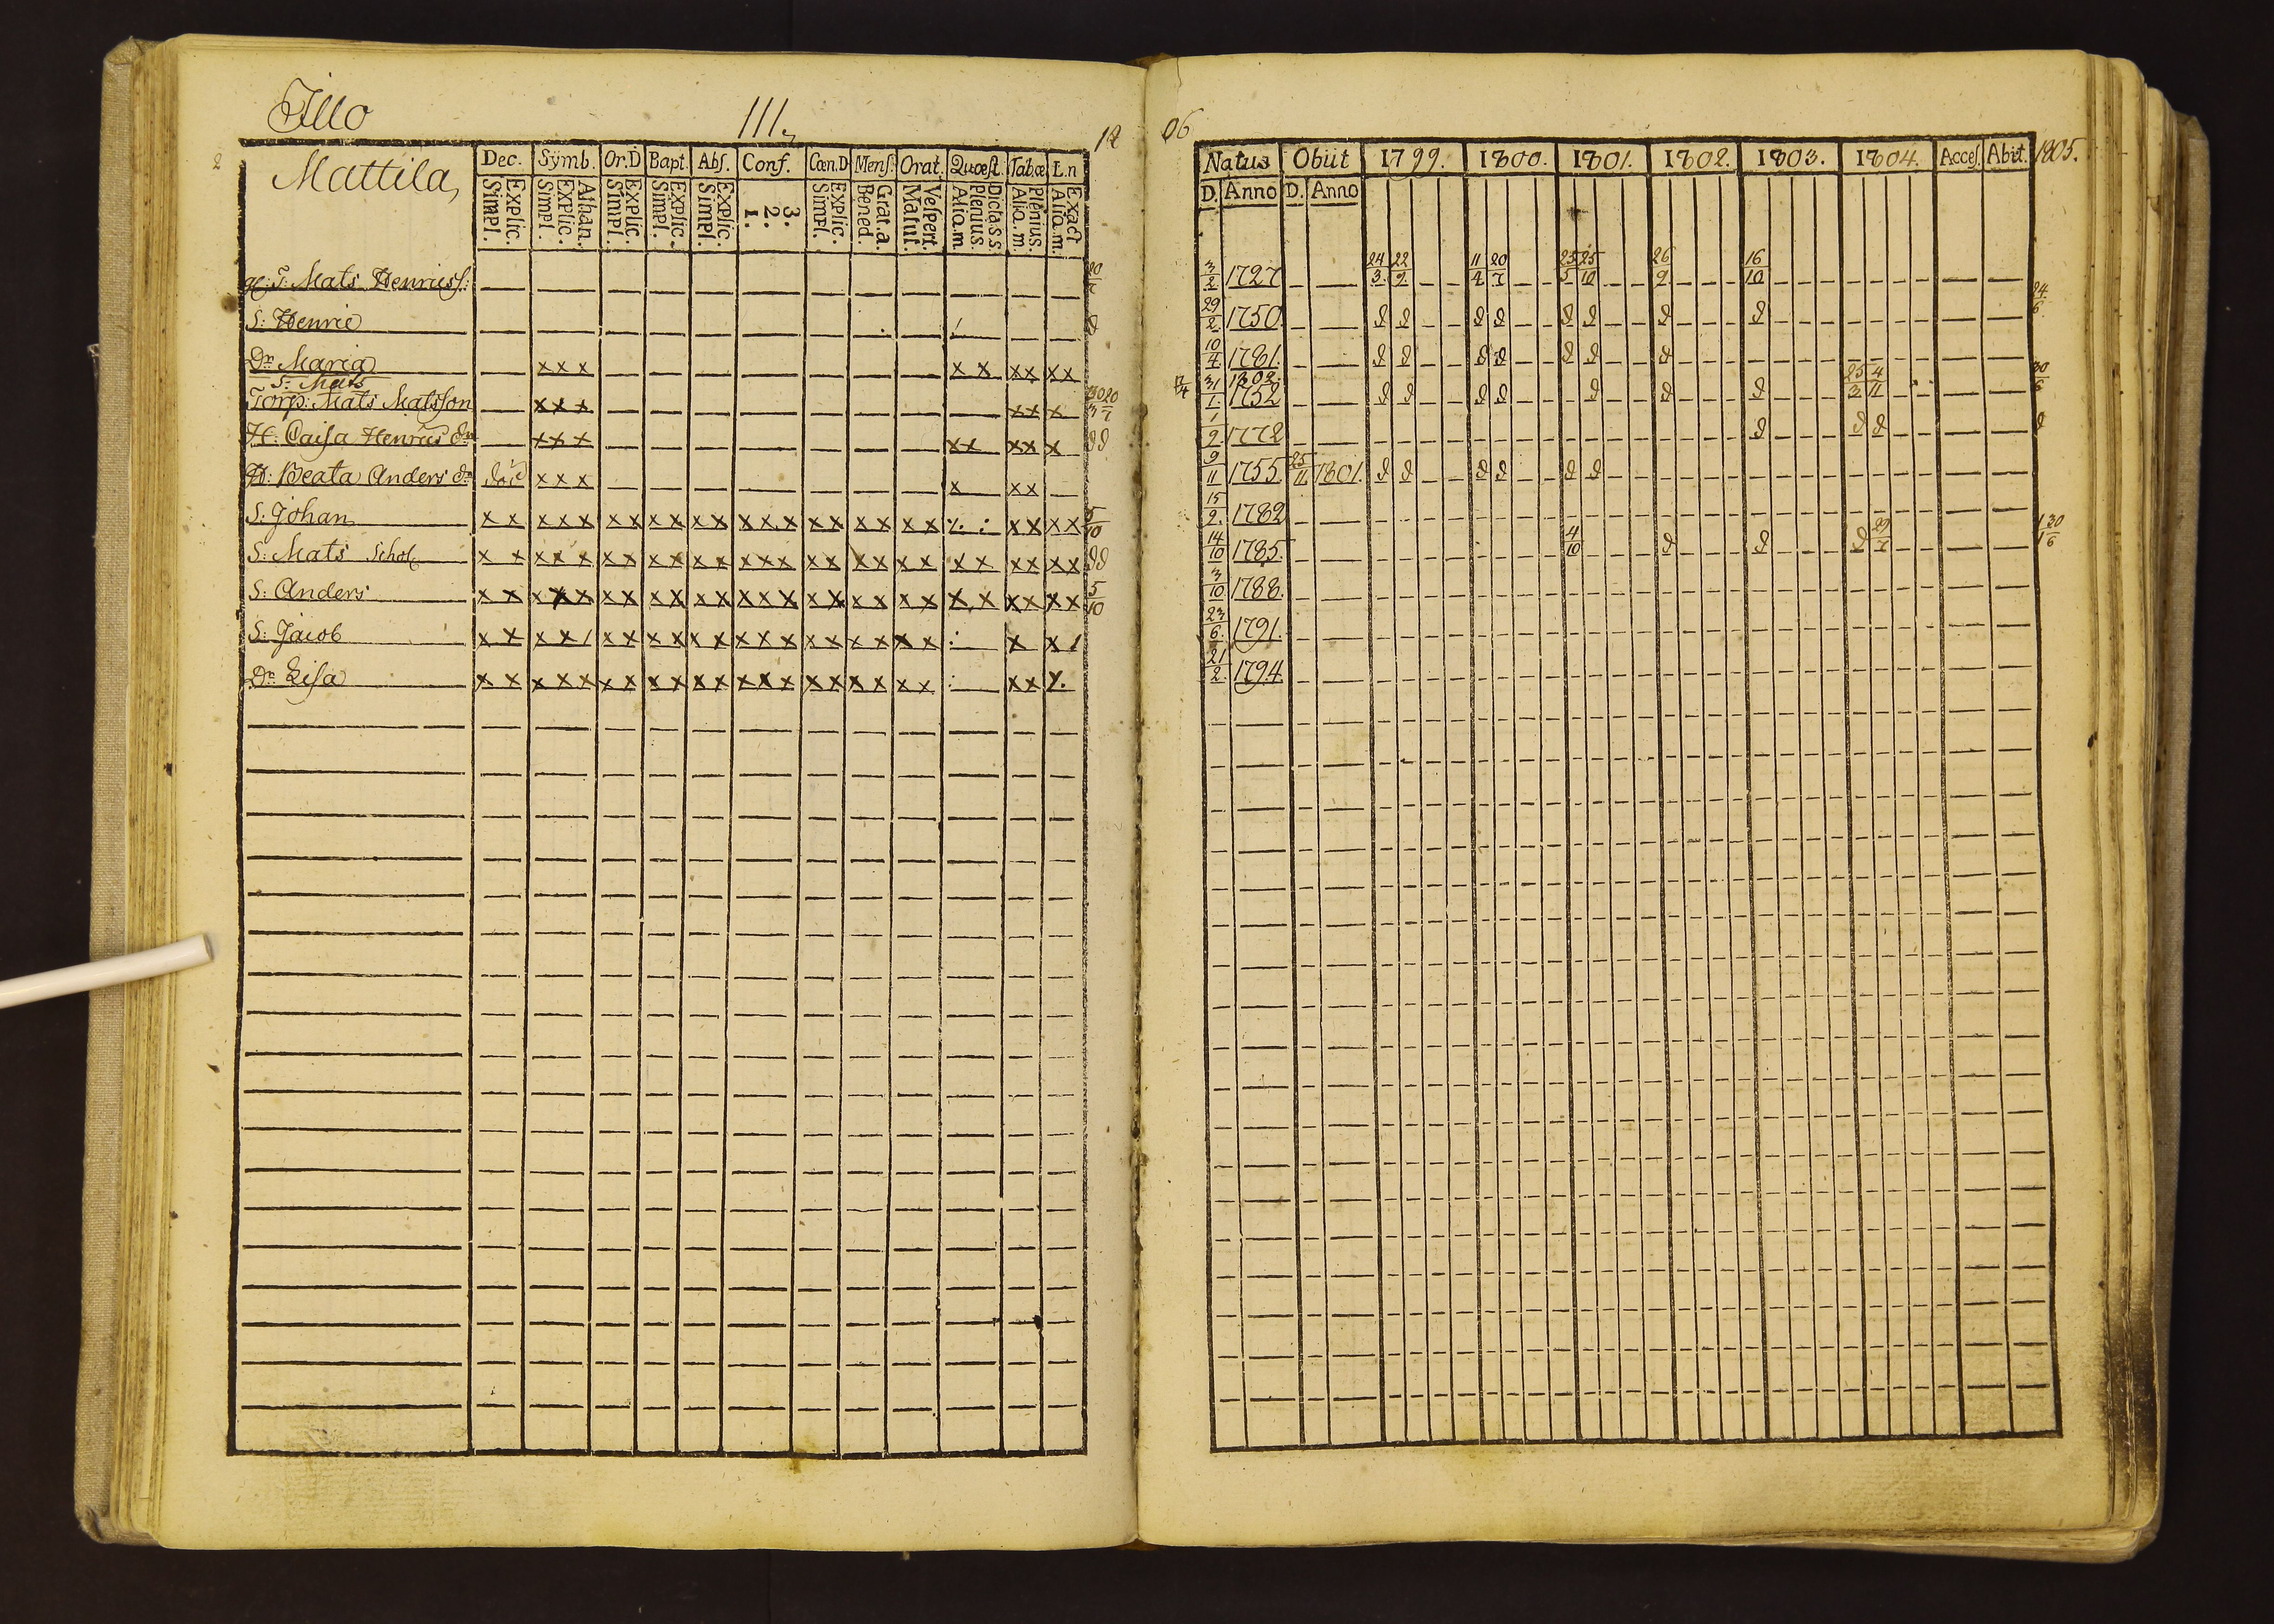 Illo
111.
Mattila,
Dec. Symb. Or.D Bapt. Abs. Conf. Cœn.D Mens. Orat. Quæst. Tab.œ L.n
Explic. Simpl. Athan. Explic. Simpl. Explic. Simpl. Explic. Simpl. Explic. Simpl. 3. 2. 1. Explic. Simpl. Grat.a. Bened. Vespert. Matut. Dicta.s.s. Plenius. Alio.m. Plenius. Alio.m. Exact Alio.m.
Mats Henricss:
S: Henric
Dr Maria
S: Mats
Torp: Mats Matsson
H: Caisa Henrics dr
H: Beata Anders dr död
S: Johan
S: Mats Schol
S: Anders
S: Jacob
Dr Lisa
18 06
Natus Obiit 1799. 1800. 1801. 1802. 1803. 1804. Acces. Abiit. 1805.
D. Anno D. Anno
3/2 1727 24/3 22/9 11/4 20/7 25/5 25/10 26/9 16/10
29/2 1750
10/4 1781
1802
31/1 1752 25/3 4/11
1/9 1772
9/11 1755 25/11 1801
15/2 1782
14/10 1785 4/10 29/7
3/10 1788
23/6 1791
21/2 1794